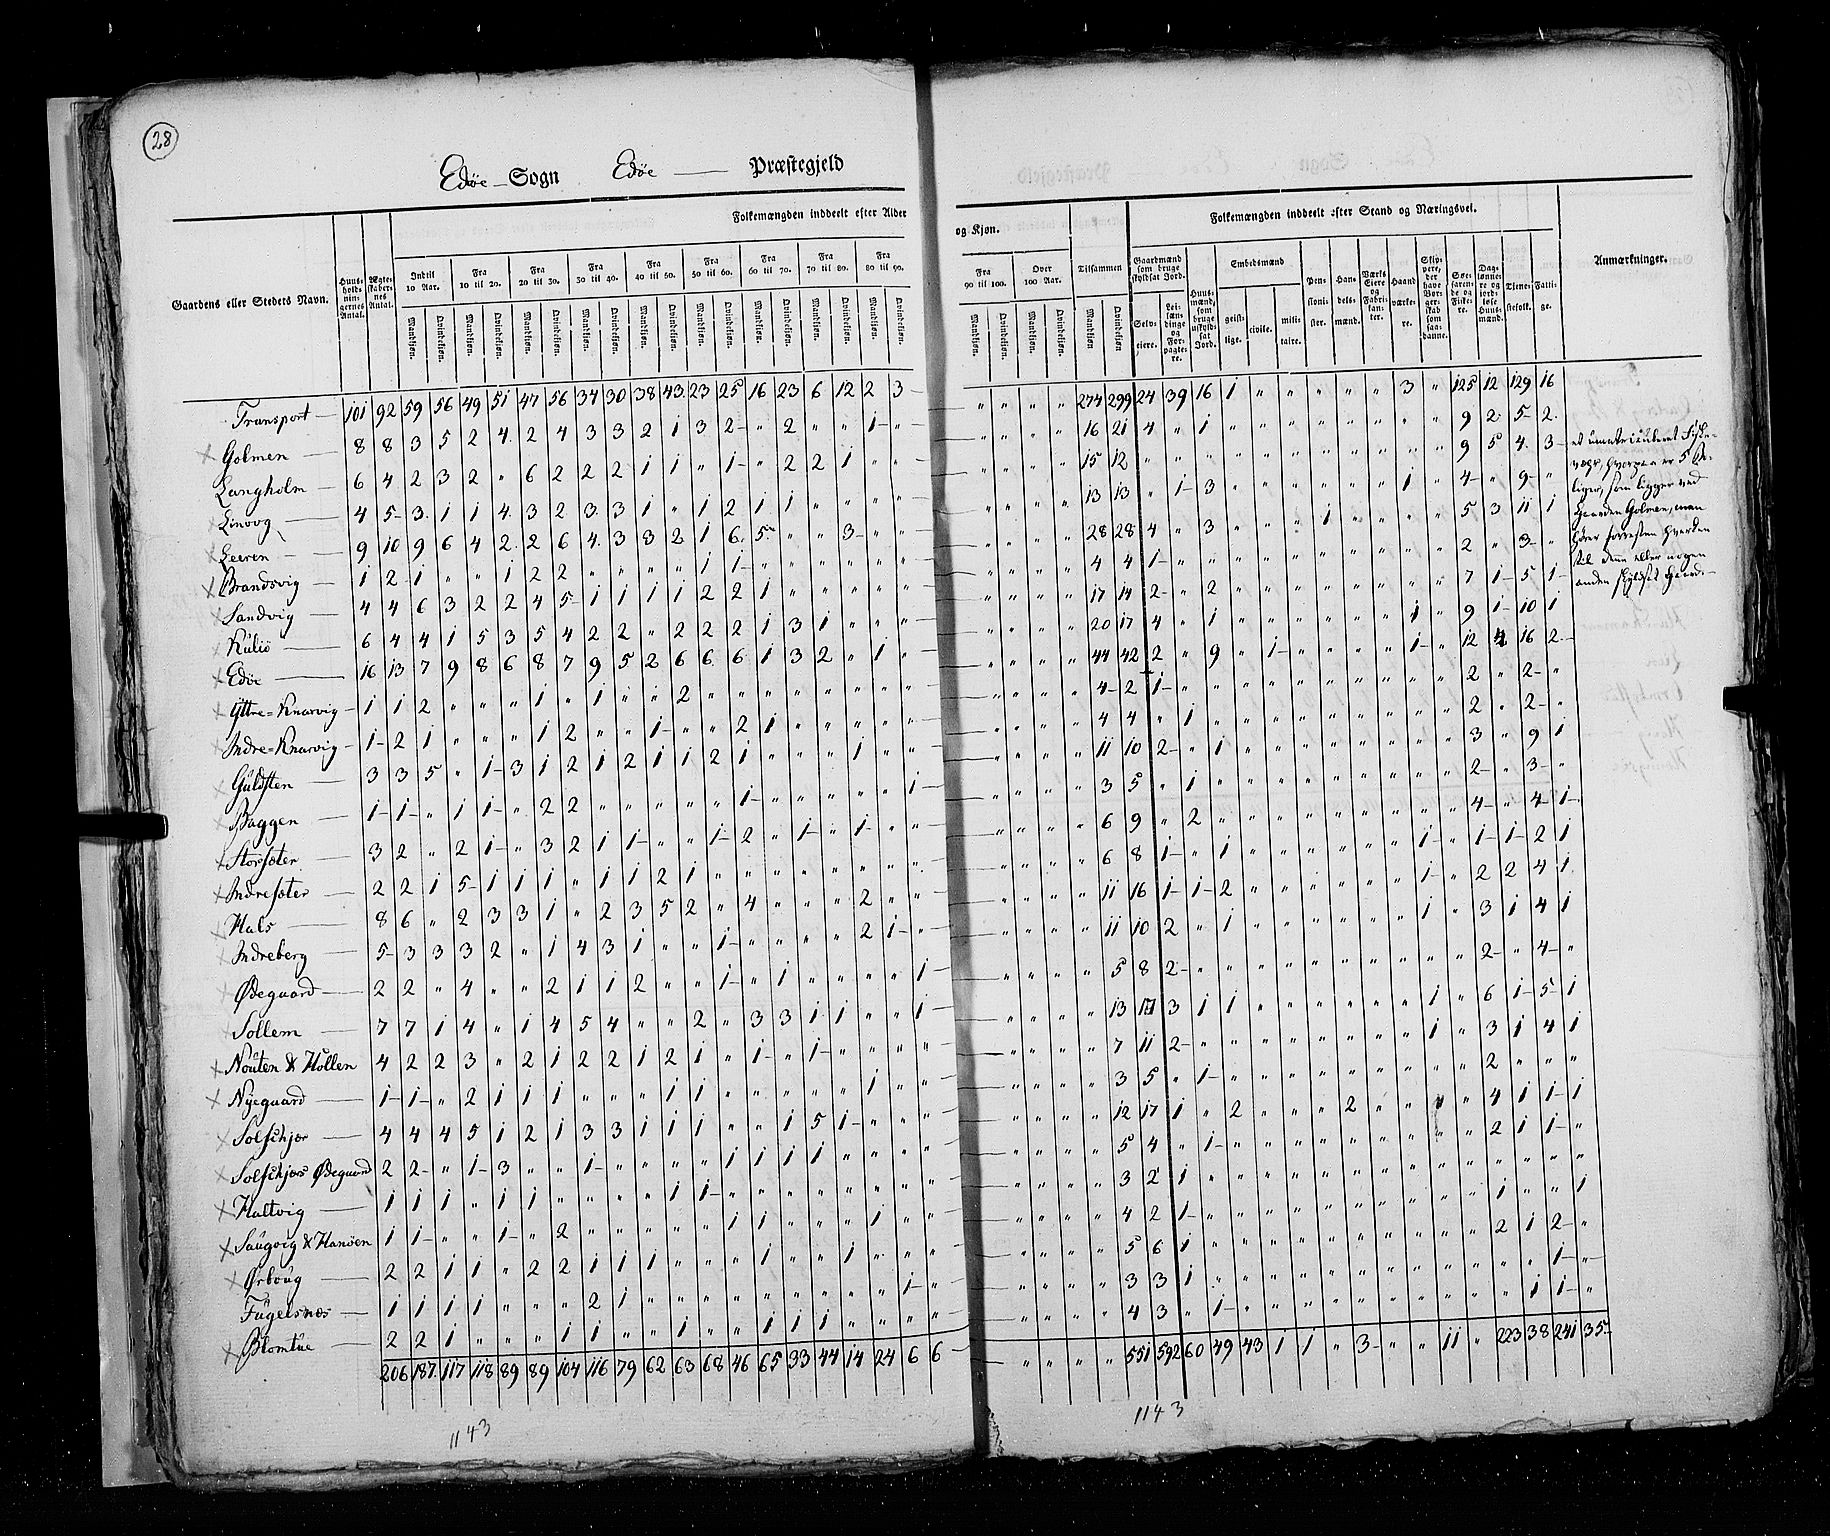 28
Edøe Sogn Edøe Præstegjeld
Gaardens eller Stedets Navn.
Huus-holdnin-gernes Antal.
Ægte-skaber-nes Antal.
Folkemængden inddeelt efter Alder
og Kjøn.
Indtil 10 Aar.
Fra 10 til 20.
Fra 20 til 30.
Fra 30 til 40.
Fra 40 til 50.
Fra 50 til 60.
Fra 60 til 70.
Fra 70 til 80.
Fra 80 til 90.
Fra 90 til 100.
Over 100 Aar.
Tilsammen
Mandkjøn. Qvindekjøn.
Folkemængden inddeelt efter Stand og Næringsvei.
Gaardmænd som bruge skyldsat Jord.
Selv-eiere.
Lei-lændinge og For-pagte-re.
Huus-mænd, som bruge uskyld-sat Jord.
Embedsmænd
geist-lige.
civile.
mili-taire.
Pen-sioni-ster.
Han-dels-mænd.
Værks Eiere og Fabri-kanter.
Haand-værke-re.
Skip-pere, der have Bor-ger-skab som saa-danne.
Søe-farende og Fiske-re.
Dag-lønne-re og jord-løse Huus-mænd.
Tjene-stefolk.
Fatti-ge.
Anmærkninger.
Transport 101 92 59 56 49 51 47 56 34 30 38 43 23 25 16 23 6 12 2 3 " " " " 274 299 24 39 16 1 " " " " " 3 " 125 12 129 16
Golmen 8 8 3 5 2 4 2 4 3 3 2 1 3 2 " 2 " " 1 " " " " " 16 21 4 " 1 " " " " " " " " 9 2 5 2
Langholm 6 4 2 3 2 " 6 2 2 2 1 1 " 1 " 2 2 1 " " " " " " 15 12 " " " " " " " " " " " 9 5 4 3
Linvog 4 5 3 1 1 4 3 2 3 3 1 " 1 2 1 1 " " " " " " " " 13 13 " 1 3 " " " " " " 1 " 4 " 9 "
Leeren 9 10 9 6 4 2 2 6 4 3 3 2 1 6 5 " " 3 " " " " " " 28 28 4 " 3 " " " 1 " " " " 5 3 11 1
Brandsvig 1 2 1 " " 1 2 2 " " " " 1 1 " " " " " " " " " " 4 4 1 " " " " " " " " " " 2 " 3 "
Sandvig 4 4 6 3 2 2 4 5 1 1 1 1 2 2 1 " " " " " " " " " 17 14 2 " 2 " " " " " " " " 7 1 5 1
Kulió 6 4 4 1 5 3 5 4 2 2 " 2 2 2 1 3 1 " " " " " " " 20 17 4 " 1 " " " " " " 1 " 9 1 10 1
Edöe 16 13 7 9 8 6 8 7 9 5 2 6 6 6 1 3 2 " 1 " " " " " 44 42 2 " 9 " 1 " " " " 1 " 12 4 16 2
Yttre=Knarvig 1 1 2 " " " 1 " 1 " " 2 " " " " " " " " " " " " 4 2 1 " " " " " " " " " " 2 " 2 "
Indre=Knarvig 1 2 1 " " " 1 2 " " 1 " " 2 1 " " " " " " " " " 4 4 " 1 " " " " " " " " 2 " 2 "
Guldsten 3 3 5 " 1 3 1 2 1 2 1 1 2 1 " " " 1 " " " " " " 11 10 2 " 1 " " " " " " " " 3 " 9 1
Baggen 1 1 " 1 1 " 2 2 " " " " " 1 " " " " " 1 " " " " 3 5 " 1 " " " " " " " " " 2 " 3 "
Storsöter 3 2 " 2 1 " 3 2 1 1 " " 1 2 " 1 " 1 " " " " " " 6 9 " 2 " " " " " " " " " 4 " 4 1
Indresöter 2 2 1 5 1 1 1 " 1 1 2 1 " " " " " " " " " " " " 6 8 1 " 1 " " " " " " 1 " 1 1 2 1
Hals 8 6 " 2 3 3 1 " 2 3 5 2 " 4 " " " 2 " " " " " " 11 16 1 1 2 " " " " " " 1 " 2 2 4 1
Indreberg 5 3 3 3 2 " 1 4 3 1 " " 1 " " " " 2 1 " " " " " 11 10 2 " 1 " " " " " " 1 " 3 1 4 1
Ødegaard 2 2 " 4 " " 2 1 1 2 " " 1 " 1 " " " " 1 " " " " 5 8 2 " " " " " " " " " " 2 " 4 "
Sollem 7 7 1 4 " 1 4 5 4 " " 2 " 3 3 1 1 " " 1 " " " " 13 17 3 1 1 " " " " " " 1 " 6 1 5 1
Nouten & Hollen 4 2 2 3 " 2 1 2 2 1 2 1 " 1 " 1 " " " " " " " " 7 11 2 " " " " " " " " 1 " 3 1 4 1
Nyegaard 1 1 " 2 1 1 1 " " " 1 1 " " " " " 1 " " " " " " 3 5 " 1 " " " " " " " " " 2 " " "
Solschjør 4 4 4 5 1 2 1 3 3 1 1 1 " " 1 5 1 " " " " " " " 12 17 1 " 2 " " " 2 " " " " 4 1 1 1
Solschjørs Ødegaard 2 2 " 1 3 " " 1 " " " " 1 1 1 1 " " " " " " " " 5 4 " 1 " " " " " " " " " 2 1 1 "
Haltvig 1 1 1 " 1 1 " " " " 1 1 " " " " " " " " " " " " 3 2 1
Saugvig & Hanöen 1 1 " " 1 " 2 " " " " " 1 1 " " " 1 " " " " " " 4 2 1 " " " " " " " " " " 1 " " 1
Ørboug 2 2 1 1 " 2 2 1 1 1 " " " 1 " " 1 " " " " " " " 5 6 1 " " " " " " " " " " 2 1 2 "
Fugelsnes 1 1 1 1 " " " 2 1 " " " " " " " " " 1 " " " " " 3 3 1 " " " " " " " " " " " " 1 "
Blomtue 2 2 1 " " " 1 1 " " 1 " " 1 1 1 " " " " " " " " 4 3 " 1 " " " " " " " " " " 1 1 "
206 187 117 118 89 89 104 116 79 62 63 68 46 65 33 44 14 24 6 6 " " " " 551 592 60 49 43 1 1 " 3 " " 11 " 223 38 241 35
1143
1143
et umatriculeret Fiske-
vær, hvorpaa er 5 Bo-
liger, som ligger ved
Gaarden Golmen, men
hører forresten hverken
til denne eller nogen
anden skyldsat Gaard.